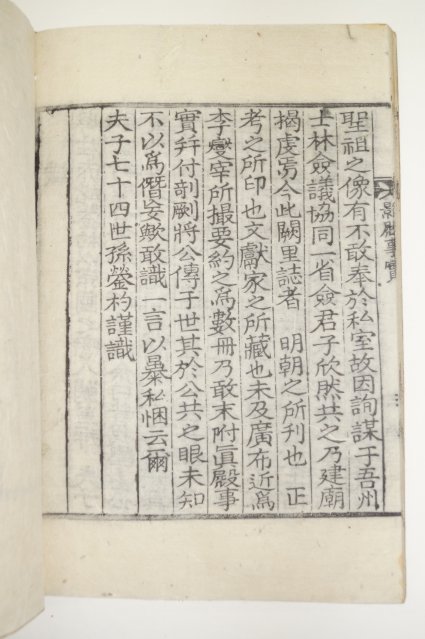 聖祖之像有不敢奉於私室故因詢謀于吾州
士林僉議協同一省僉君子欣然共之乃建廟
揭虔焉今此闕里誌者 明朝之所刊也 正
考之所印也文獻家之所藏也未及廣布近爲
李燮宰所撮要約之爲數冊乃敢末附眞殿事
實幷付剞劂將公傳于世其於公共之眼未知
不以爲僭妄歟敢識一言以暴私悃云爾
夫子七十四世孫瑩杓謹識
事實